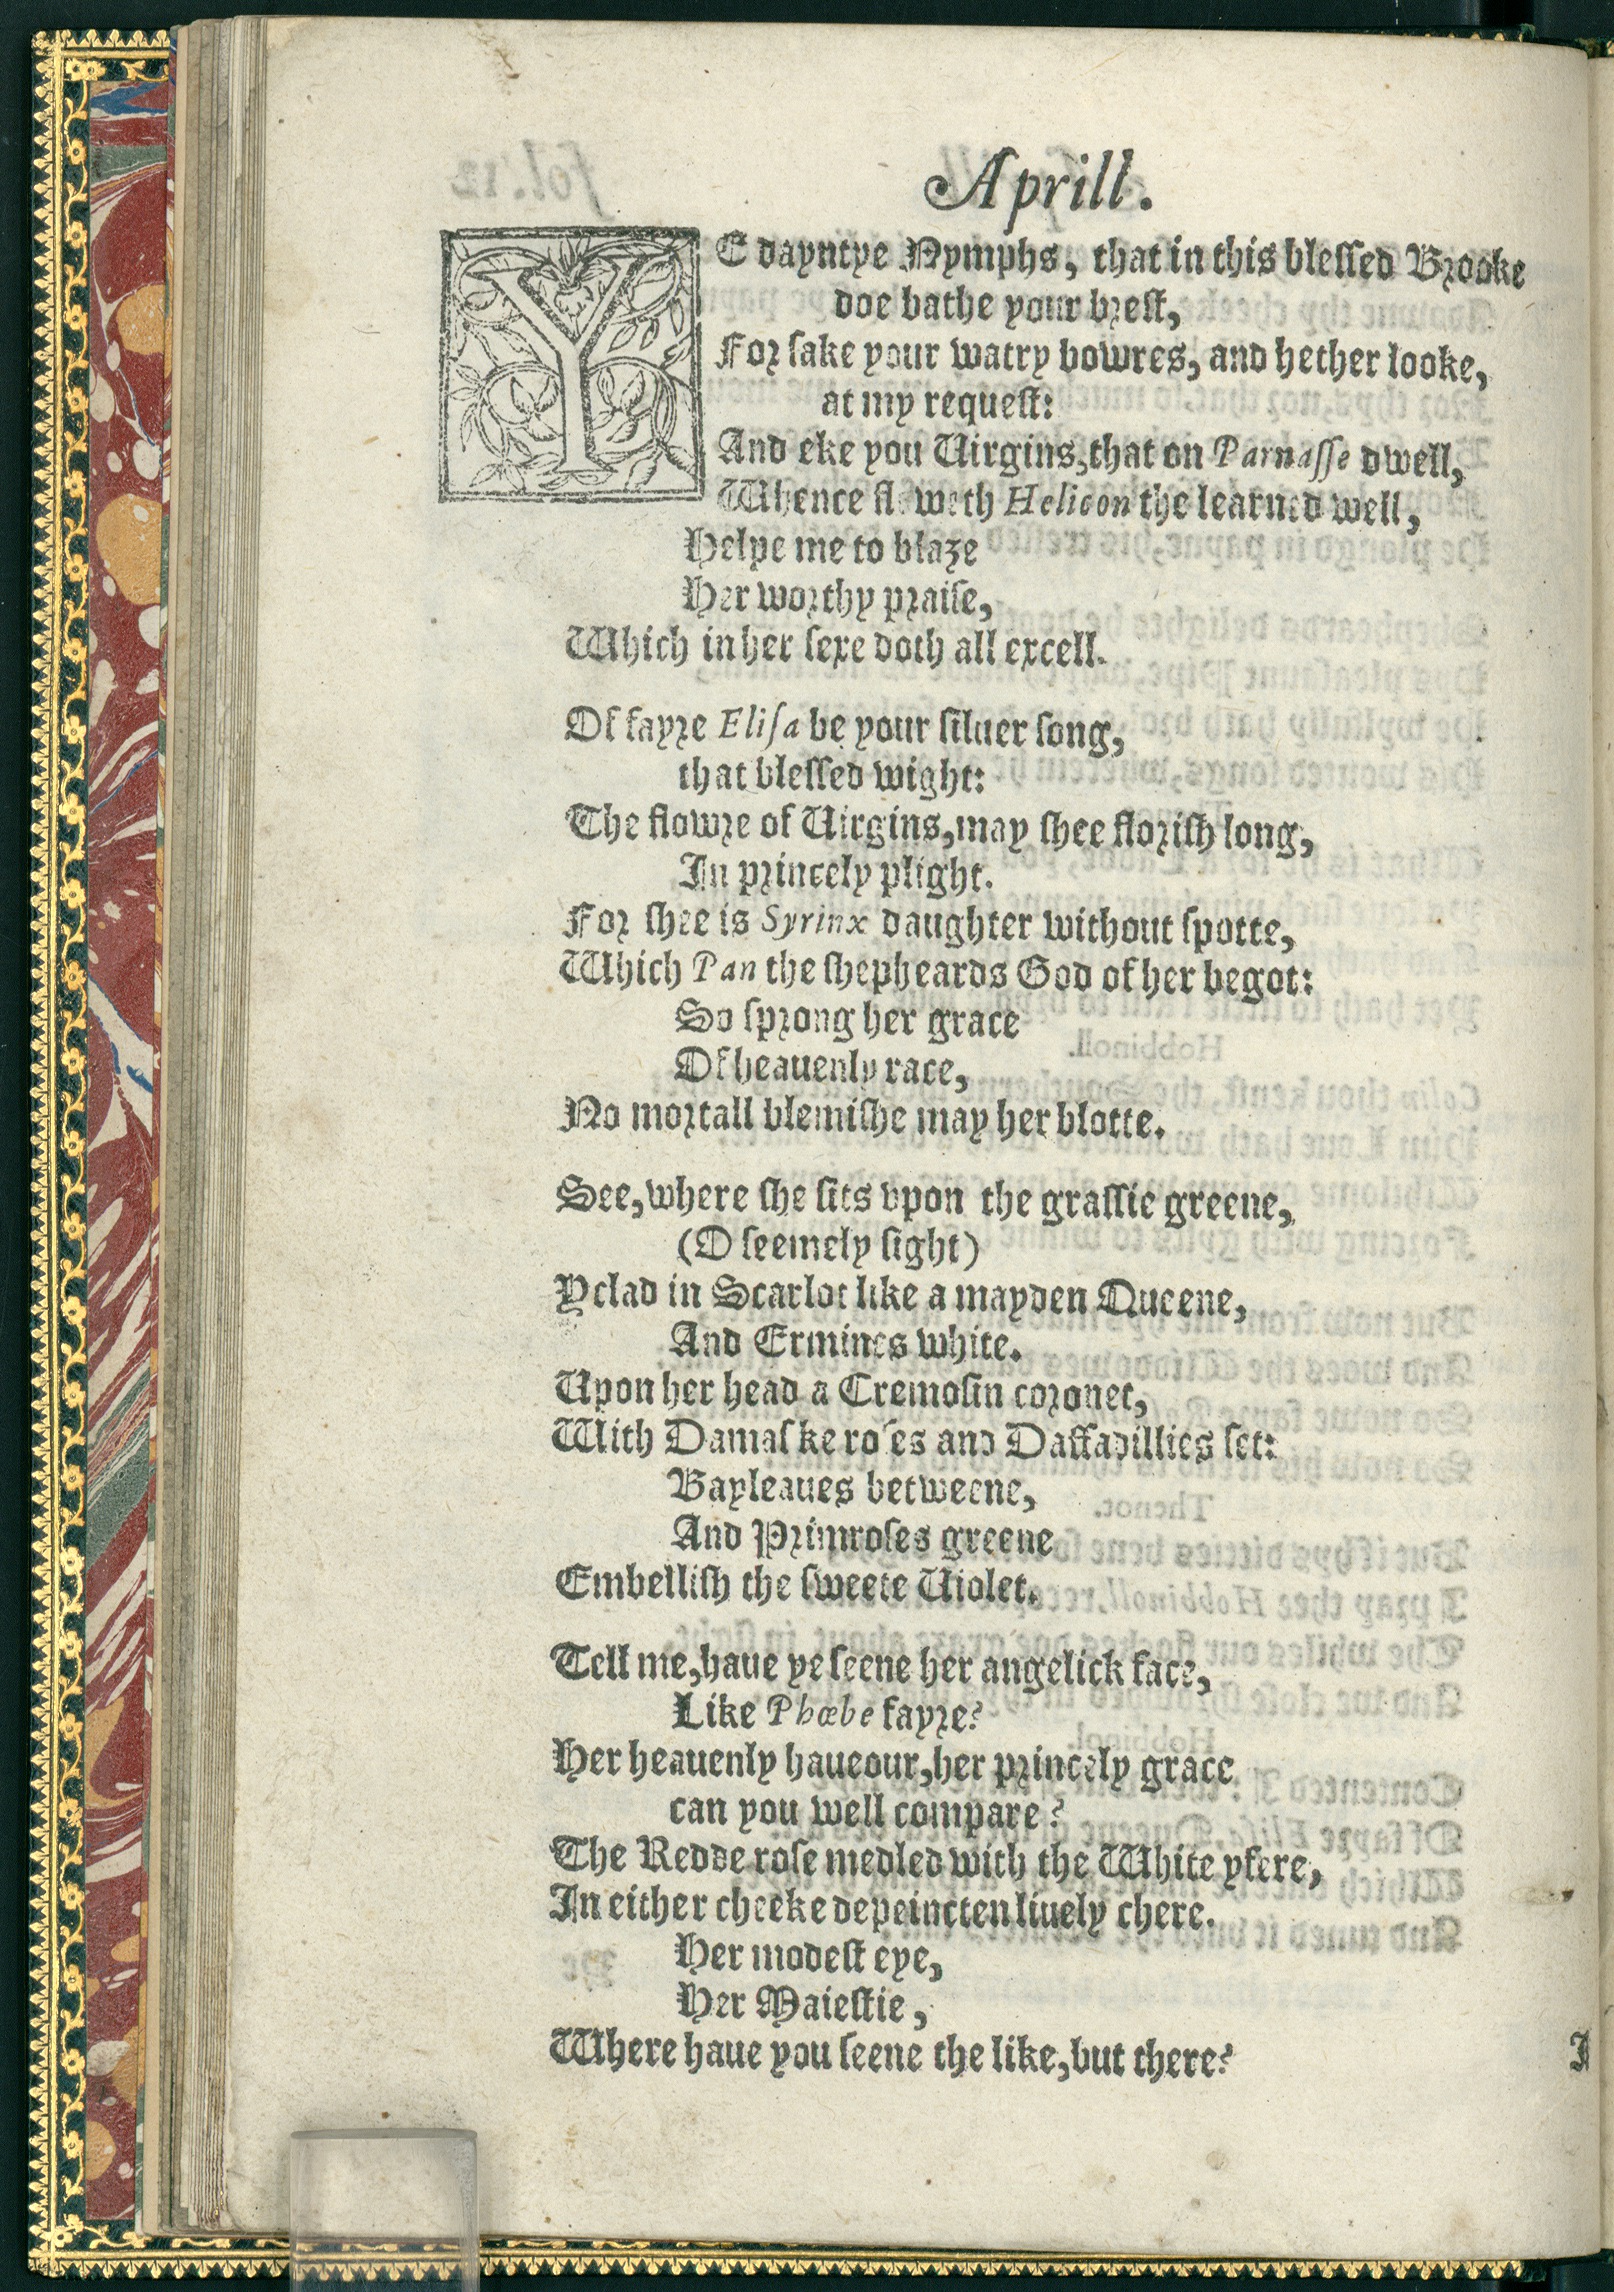 Aprill.
YE dayntye Nymphs, that in this blessed Brooke
doe bathe your brest,
For sake your watry bowres, and hether looke,
at my request:
And eke you Uirgins, that on Parnasse dwell,
Whence floweth Helicon the learned well,
Helpe me to blaze
Her worthy praise,
Which in her sexe doth all excell.
Of fayre Elisa be your siluer song,
that blessed wight:
The flowre of Uirgins, may shee florish long,
In princely plight.
For shee is Syrinx daughter without spotte,
Which Pan the shepheards God of her begot:
So sprong her grace
Of heauenly race,
No mortall blemishe may her blotte.
See, where she sits vpon the grassie greene,
(O seemely sight)
Yclad in Scarlot like a mayden Queene,
And Ermines white.
Upon her head a Cremosin coronet,
With Damaske roses and Daffadillies set:
Bayleaues betweene,
And Primroses greene
Embellish the sweete Uiolet.
Tell me, haue ye seene her angelick face,
Like Phœbe fayre?
Her heauenly haueour, her princely grace
can you well compare?
The Redde rose medled with the White yfere,
In either cheeke depeincten liuely chere.
Her modest eye,
Her Maiestie,
Where haue you seene the like, but there?